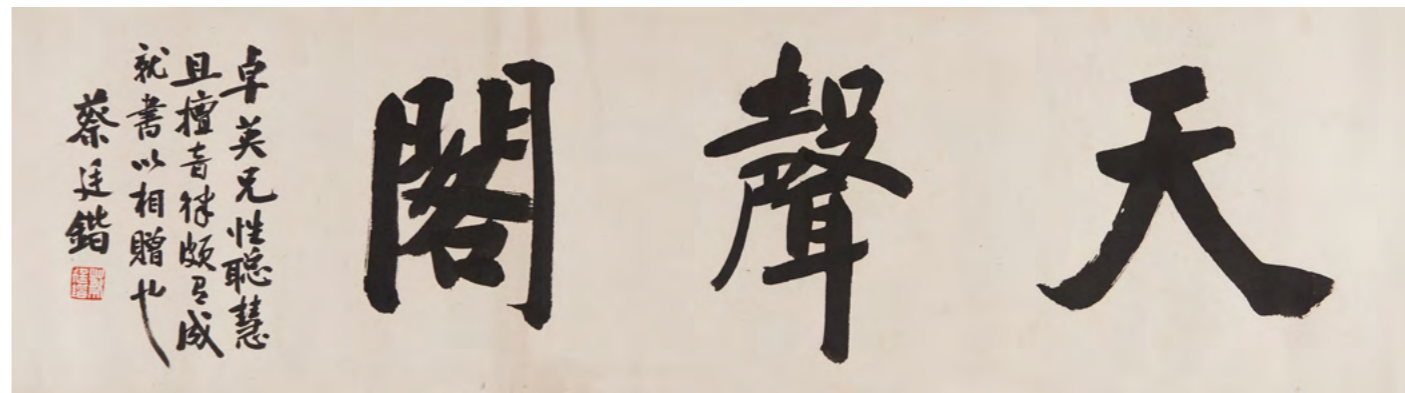 天聲閣
卓英兄性聰慧
且擅音律頗有成
就書以相贈也
蔡廷鍇